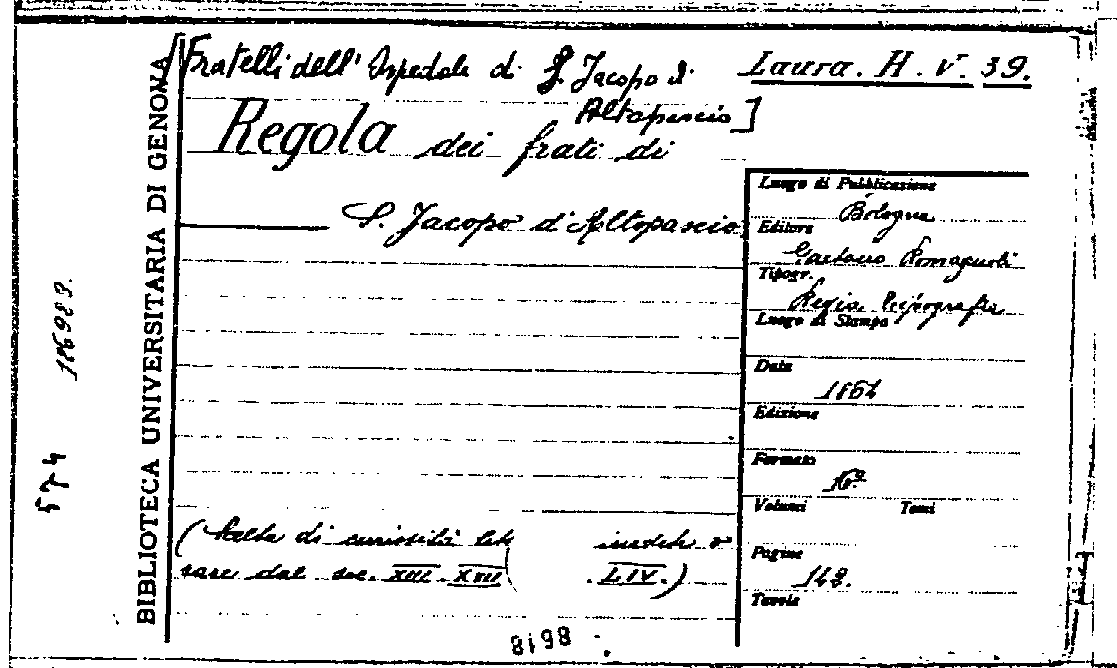 [Fratelli dell' Ospedale di S. Jacopo d'
Altopascio]
Laura. H. V. 39.
Regola dei frati di
S. Jacopo d'Altopascio
Luogo di Pubblicazione
Bologna
Editore
Gaetano Romagnoli
Tipogr.
Regia tipografia
Luogo di Stampa
Data
1864
Edizione
Formato
16º
Volumi Tomi
Pagine
148.
Tavole
(Scelta di curiosità lett inedite o
rare dal sec. XIII. XVII LIV.)
8198
BIBLIOTECA UNIVERSITARIA DI GENOVA
574 116983.